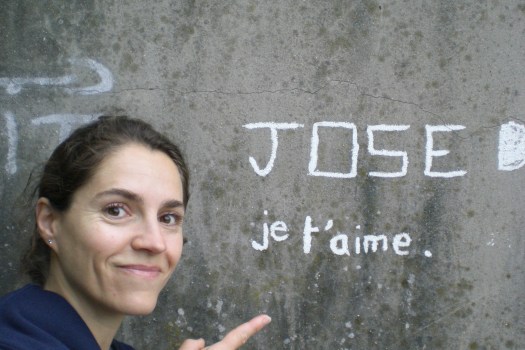 JOSE
je t'aime.